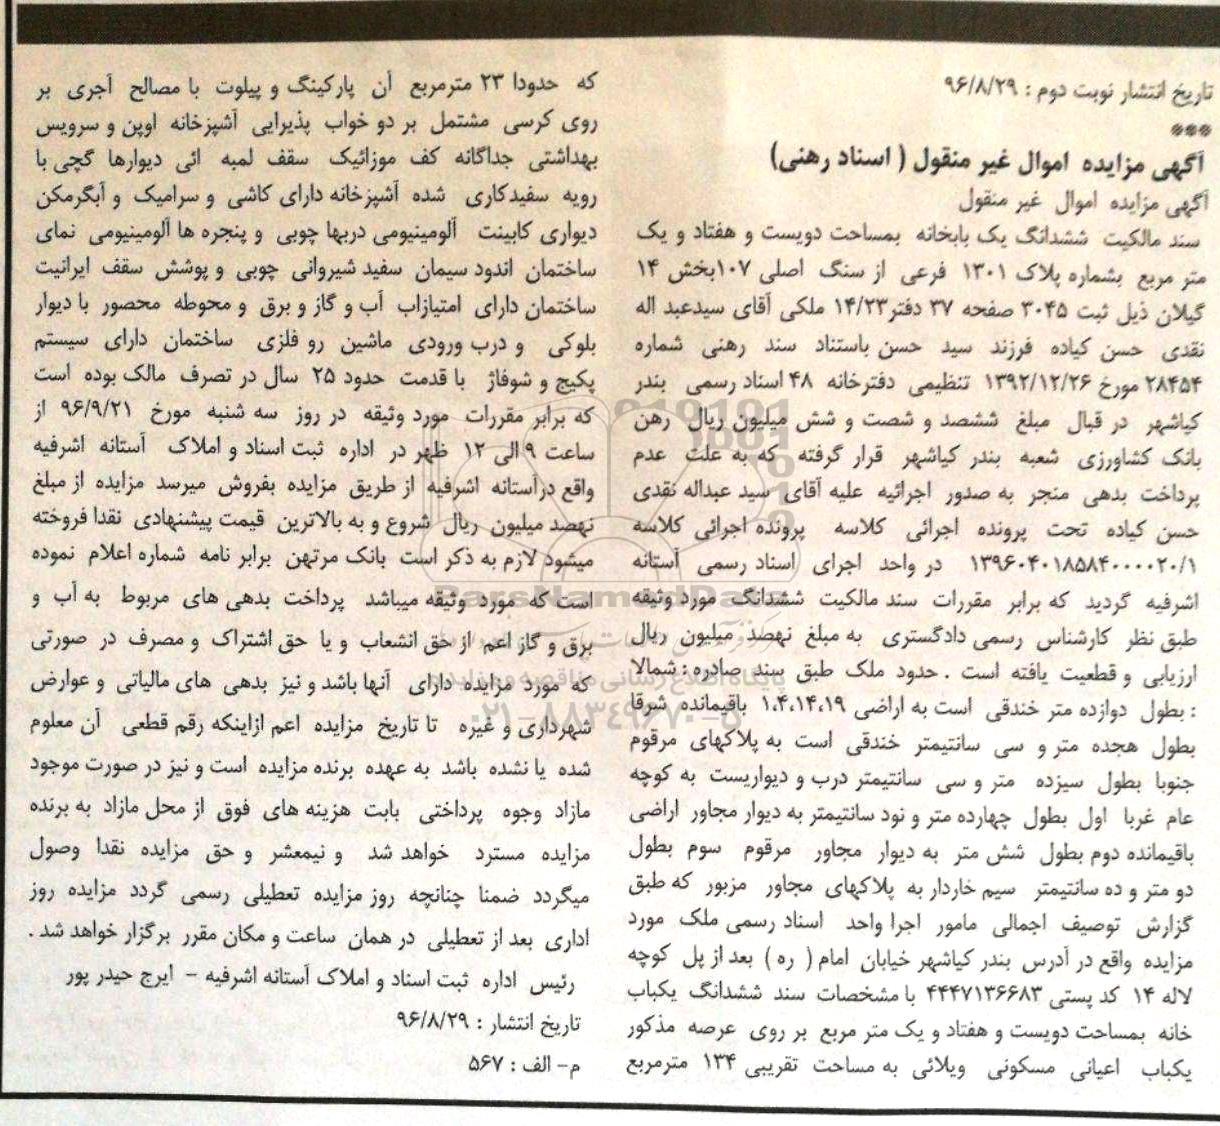 تاریخ انتشار نوبت دوم : ۹۶/۸/۲۹
***
آگهی مزایده اموال غیر منقول ( اسناد رهنی)
آگهی مزایده اموال غیر منقول
سند مالکیت ششدانگ یک بابخانه بمساحت دویست و هفتاد و یک
متر مربع بشماره پلاک ۱۳۰۱ فرعی از سنگ اصلی ۱۰۷بخش ۱۴
گیلان ذیل ثبت ۳۰۴۵ صفحه ۳۷ دفتر۱۴/۲۳ ملکی آقای سیدعبد اله
نقدی حسن کیاده فرزند سید حسن باستناد سند رهنی شماره
۲۸۴۵۴ مورخ ۱۳۹۲/۱۲/۲۶ تنظیمی دفترخانه ۴۸ اسناد رسمی بندر
کیاشهر در قبال مبلغ ششصد و شصت و شش میلیون ریال رهن
بانک کشاورزی شعبه بندر کیاشهر قرار گرفته که به علت عدم
پرداخت بدهی منجر به صدور اجرائیه علیه آقای سید عبداله نقدی
حسن کیاده تحت پرونده اجرائی کلاسه پرونده اجرائی کلاسه
۱۳۹۶۰۴۰۱۸۵۸۴۰۰۰۰۲۰/۱ در واحد اجرای اسناد رسمی آستانه
اشرفیه گردید که برابر مقررات سند مالکیت ششدانگ مورد وثیقه
طبق نظر کارشناس رسمی دادگستری به مبلغ نهصد میلیون ریال
ارزیابی و قطعیت یافته است . حدود ملک طبق سند صادره : شمالا
: بطول دوازده متر خندقی است به اراضی ۱،۴،۱۴،۱۹ باقیمانده شرقا
بطول هجده متر و سی سانتیمتر خندقی است به پلاکهای مرقوم
جنوبا بطول سیزده متر و سی سانتیمتر درب و دیواریست به کوچه
عام غربا اول بطول چهارده متر و نود سانتیمتر به دیوار مجاور اراضی
باقیمانده دوم بطول شش متر به دیوار مجاور مرقوم سوم بطول
دو متر و ده سانتیمتر سیم خاردار به پلاکهای مجاور مزبور که طبق
گزارش توصیف اجمالی مامور اجرا واحد اسناد رسمی ملک مورد
مزایده واقع در آدرس بندر کیاشهر خیابان امام ( ره ) بعد از پل کوچه
لاله ۱۴ کد پستی ۴۴۴۷۱۳۶۶۸۳ با مشخصات سند ششدانگ یکباب
خانه بمساحت دویست و هفتاد و یک متر مربع بر روی عرصه مذکور
یکباب اعیانی مسکونی ویلائی به مساحت تقریبی ۱۳۴ مترمربع
که حدودا ۲۳ مترمربع آن پارکینگ و پیلوت با مصالح آجری بر
روی کرسی مشتمل بر دو خواب پذیرایی آشپزخانه اوپن و سرویس
بهداشتی جداگانه کف موزائیک سقف لمبه ائی دیوارها گچی با
رویه سفیدکاری شده آشپزخانه دارای کاشی و سرامیک و آبگرمکن
دیواری کابینت آلومینیومی دربها چوبی و پنجره ها آلومینیومی نمای
ساختمان اندود سیمان سفید شیروانی چوبی و پوشش سقف ایرانیت
ساختمان دارای امتیازاب آب و گاز و برق و محوطه محصور با دیوار
بلوکی و درب ورودی ماشین رو فلزی ساختمان دارای سیستم
پکیج و شوفاژ با قدمت حدود ۲۵ سال در تصرف مالک بوده است
که برابر مقررات مورد وثیقه در روز سه شنبه مورخ ۹۶/۹/۲۱ از
ساعت ۹ الی ۱۲ ظهر در اداره ثبت اسناد و املاک آستانه اشرفیه
واقع درآستانه اشرفیه از طریق مزایده بفروش میرسد مزایده از مبلغ
نهصد میلیون ریال شروع و به بالاترین قیمت پیشنهادی نقدا فروخته
میشود لازم به ذکر است بانک مرتهن برابر نامه شماره اعلام نموده
است که مورد وثیقه میباشد پرداخت بدهی های مربوط به آب و
برق و گاز اعم از حق انشعاب و یا حق اشتراک و مصرف در صورتی
که مورد مزایده دارای آنها باشد و نیز بدهی های مالیاتی و عوارض
شهرداری و غیره تا تاریخ مزایده اعم ازاینکه رقم قطعی آن معلوم
شده یا نشده باشد به عهده برنده مزایده است و نیز در صورت موجود
مازاد وجوه پرداختی بابت هزینه های فوق از محل مازاد به برنده
مزایده مسترد خواهد شد و نیمعشر و حق مزایده نقدا وصول
میگردد ضمنا چنانچه روز مزایده تعطیلی رسمی گردد مزایده روز
اداری بعد از تعطیلی در همان ساعت و مکان مقرر برگزار خواهد شد .
رئیس اداره ثبت اسناد و املاک آستانه اشرفیه - ایرج حیدر پور
تاریخ انتشار : ۹۶/۸/۲۹
م- الف : ۵۶۷
ParsNamadData
پایگاه اطلاع رسانی مناقصه و مزایده
۰۲۱-۸۸۳۴۹۶۷۰-۵